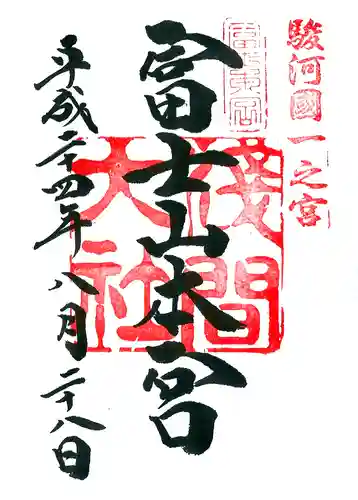 駿河國一之宮
富士山本宮
淺間大社
平成二十四年八月二十八日